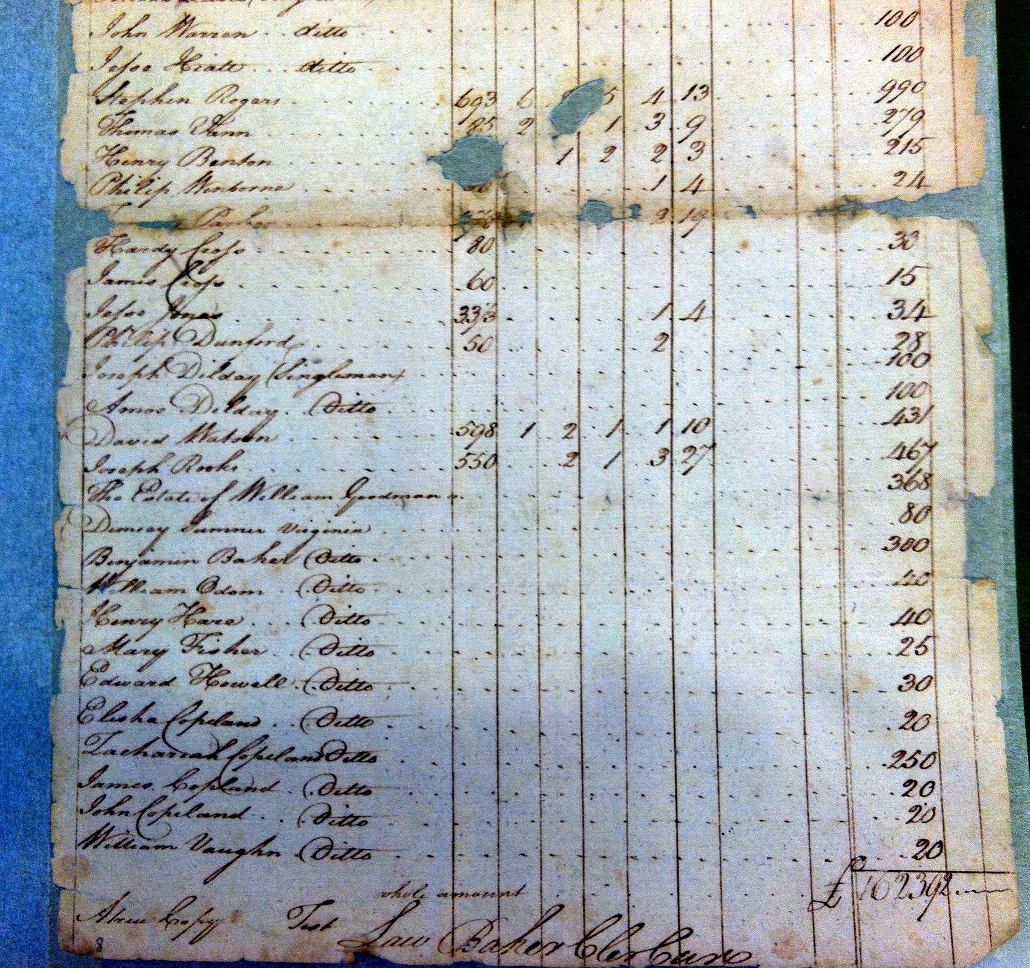 John Warren ditto 100
Jesse Hiatt ditto 100
Stephen Rogers 693 6 5 4 13 990
Thomas 85 2 1 3 9 279
Henry Benton 1 2 2 3 215
Philip Winborne 1 4 24
Parker 3 19
Hardy Cross 80 30
James Cross 60 15
Jesse Jones 333 1 4 34
Philip Dunford 50 2 28
Joseph Dilday (Singleman) 100
Amos Dilday (Ditto 100
David Watson 598 1 2 1 1 10 431
Joseph Rooks 550 2 1 3 27 467
The Estate of William Goodman 368
Demsey Sumner Virginia 80
Benjamin Baker (Ditto 300
William Odom (Ditto 40
Henry Hare (Ditto 40
Mary Fisher (Ditto 25
Edward Howell (Ditto 30
Elisha Copeland (Ditto 20
Zachariah Copeland Ditto 250
James Copland (Ditto 20
John Copeland (Ditto 20
William Vaughn (Ditto 20
whole amount £162392
A True Copy Test Law Baker Cler Cur
8